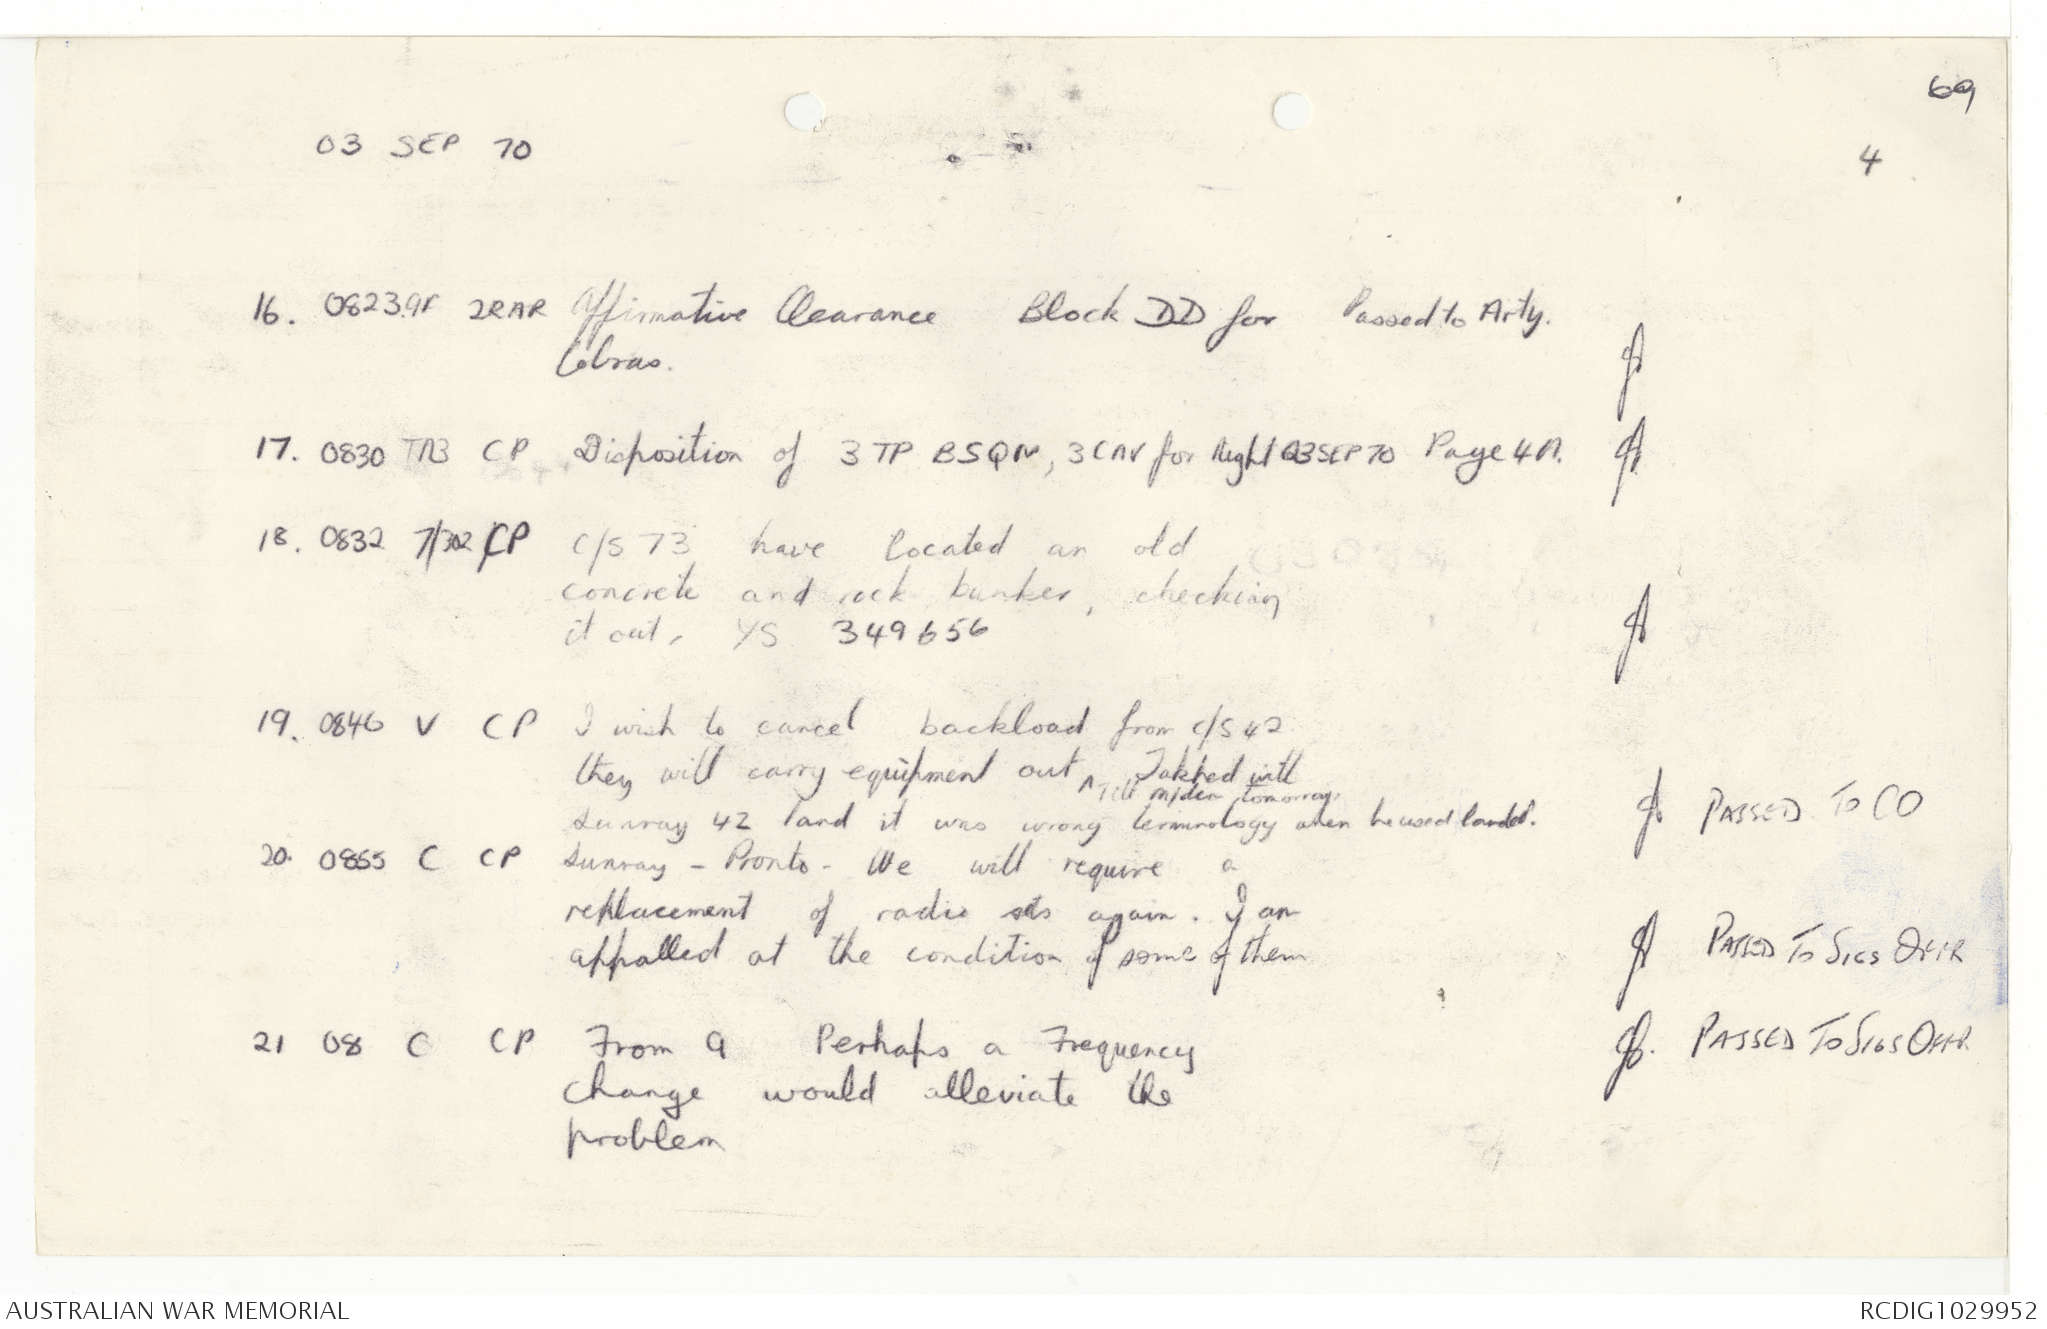 69
03 SEP 70
4
16. 0823 9F 2RAR Affirmative Clearance Block DD for Passed to Arty.
Cobras.
17. 0830 CP Disposition of 3 TP BSQN, 3 CAV for Night 03 SEP 70 Page 4A.
18. 0832 7/302 CP C/S 73 have located an old
concrete and rock bunker, checking
it out, YS 349656
19. 0846 V CP I wish to cancel backload from C/S 42
they will carry equipment out ^ Till midday tomorrow. Talked with
Sunray 42 and it was wrong terminology when he used landed. PASSED TO CO
20. 0855 C CP Sunray - Pronto - We will require a
replacement of radio sets again. I am
appalled at the condition of some of them PASSED TO SIGS OFFR
21 08 C CP From 9 Perhaps a Frequency PASSED TO SIGS OFFR.
change would alleviate the
problem
AUSTRALIAN WAR MEMORIAL
RCDIG1029952